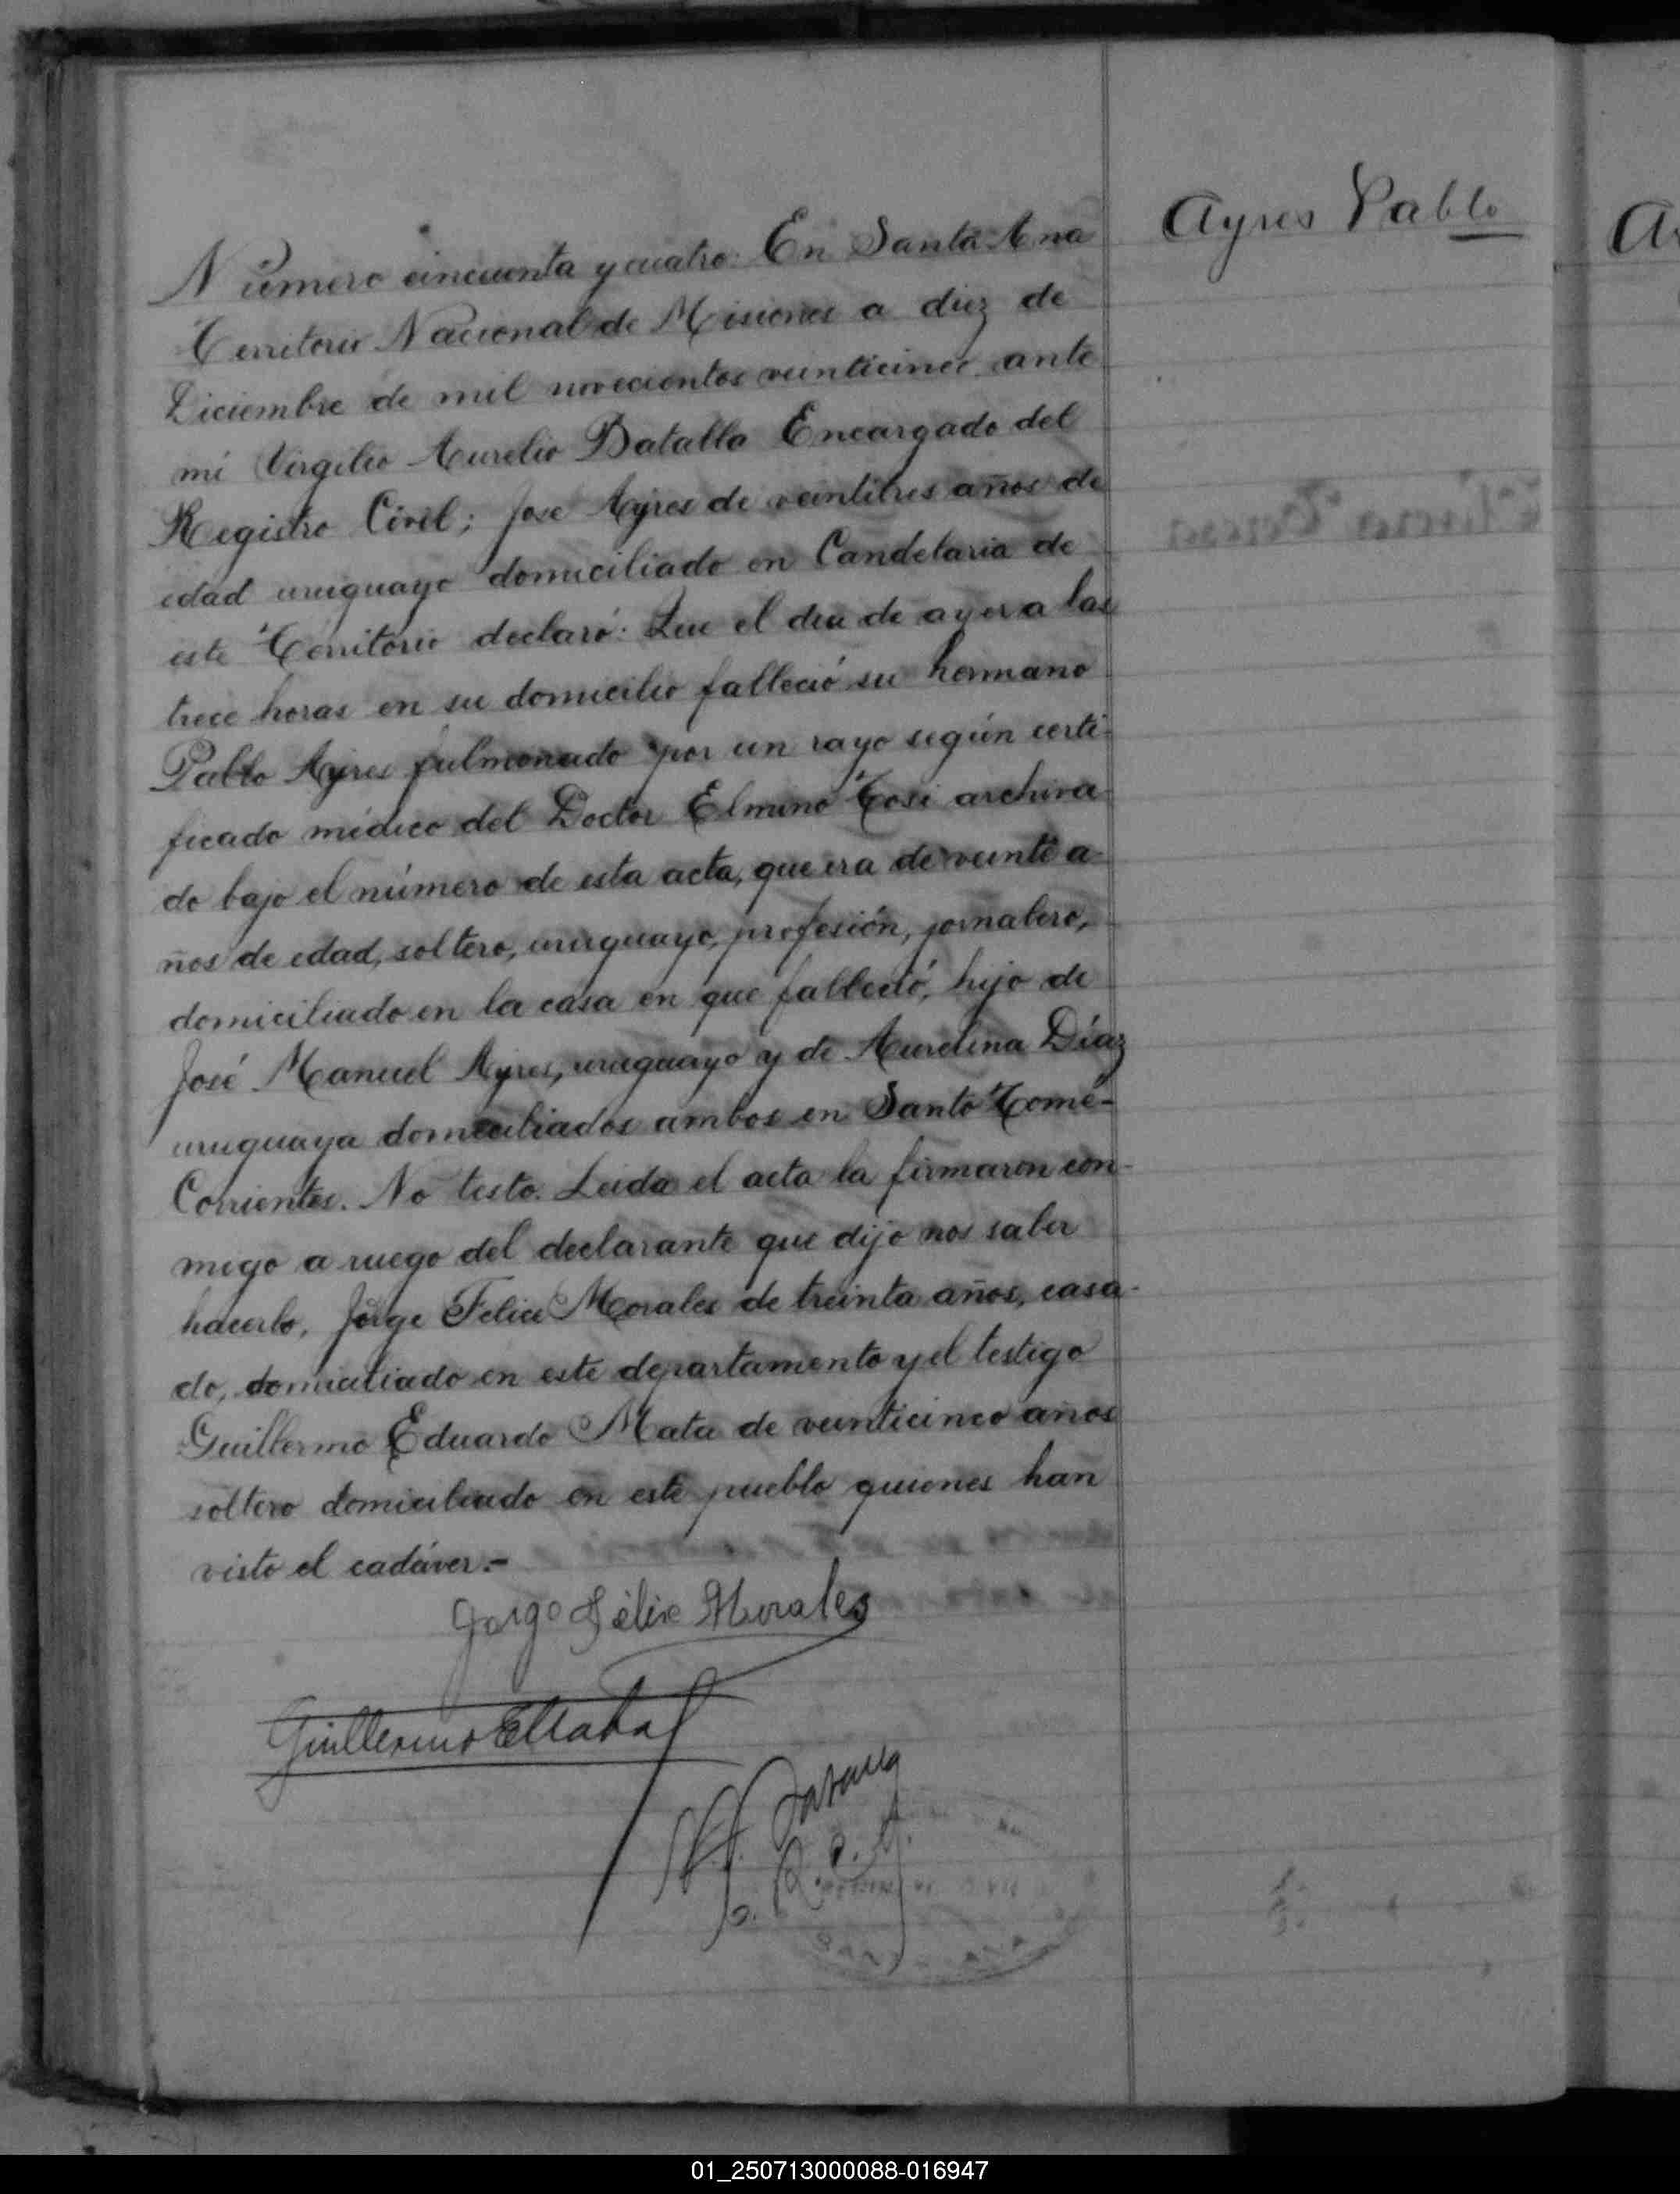 Ayres Pablo
Número cincuenta y cuatro: En Santa Ana
Territorio Nacional de Misiones a diez de
Diciembre de mil novecientos veinticinco ante
mi Virgilio Aurelio Batalla Encargado del
Registro Civil; Jose Ayres de veintitres años de
edad uruguayo domiciliado en Candelaria de
este Territorio declaró: Que el dia de ayer a las
trece horas en su domicilio falleció su hermano
Pablo Ayres fulmonado por un rayo según certi-
ficado médico del Doctor Elmino Tosi archiva-
do bajo el número de esta acta, que era de veinte a-
ños de edad, soltero, uruguayo, profesión, jornalero,
domiciliado en la casa en que falleció, hijo de
José Manuel Ayres, uruguayo y de Aurelina Díaz
uruguaya domiciliados ambos en Santo Tomé-
Corrientes. No testo. Leida el acta la firmaron con-
migo a ruego del declarante que dijo nos saber
hacerlo, Jorge Felice Morales de treinta años, casa-
do, domiciliado en este departamento y el testigo
Guillermo Eduardo Mata de veinticinco años
soltero domiciliado en este pueblo quienes han
visto el cadáver.-
Jorge Félix Morales
Guillermo E Mata
SANTA ANA
01_250713000088-016947